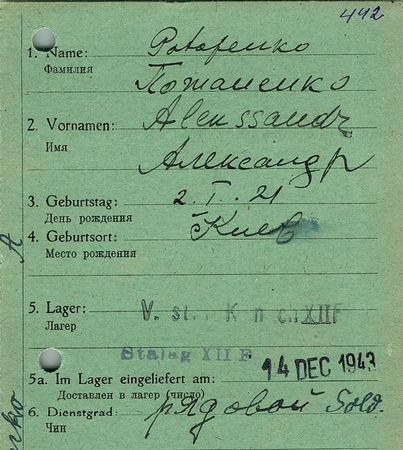 442
1. Name: Potapenko
Фамилия Потапенко
2. Vornamen: Alexssandr
Имя Александр
3. Geburtstag: 2. I. 21
День рождения
4. Geburtsort: Киев
Место рождения
5. Lager: V. st. K n XIIF
Лагер
Stalag XII F
5a. Im Lager eingeliefert am: 14 DEC 1943
Доставлен в лагер (число)
6. Dienstgrad: рядовой Sold.
Чин